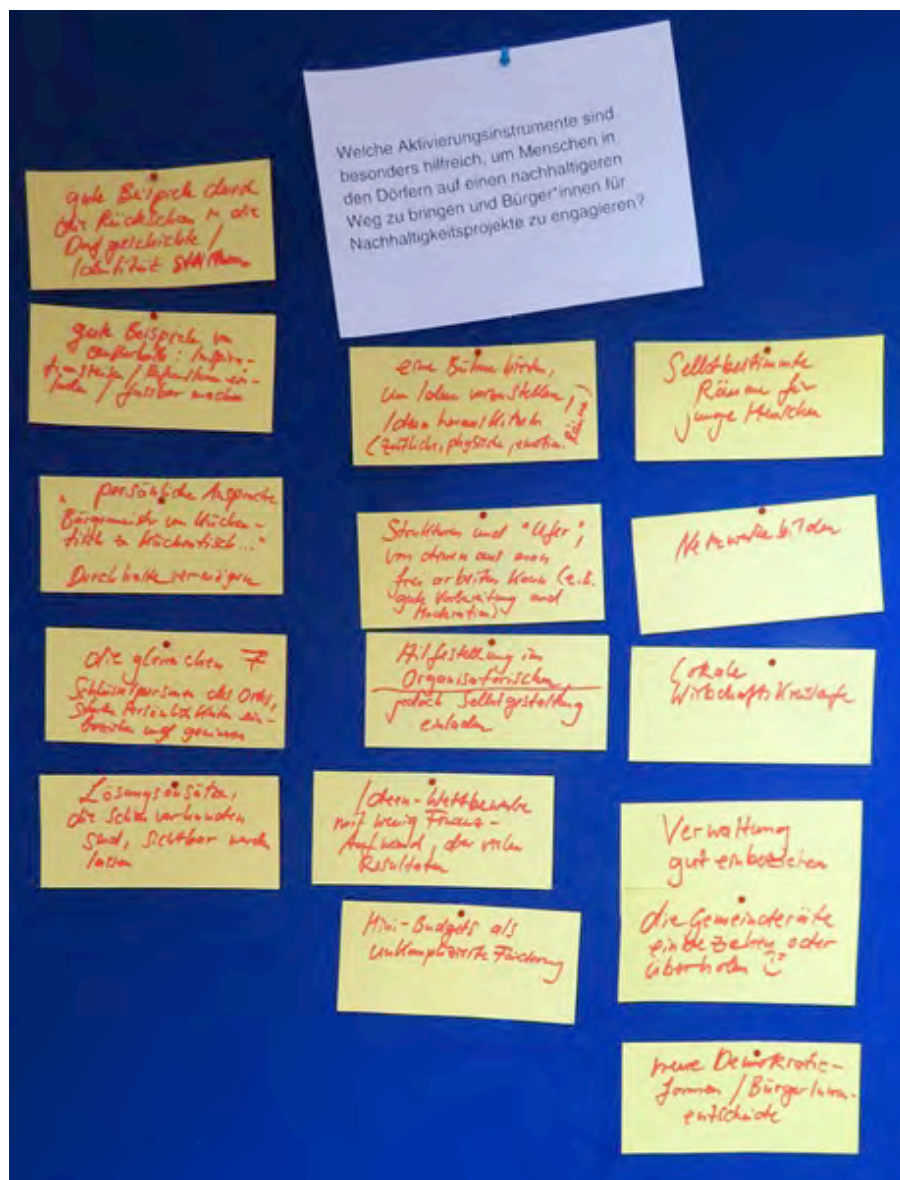 Welche Aktivierungsinstrumente sind
besonders hilfreich, um Menschen in
den Dörfern auf einen nachhaltigeren
Weg zu bringen und Bürger*innen für
Nachhaltigkeitsprojekte zu engagieren?
gute Beispiele durch
die Rückschau in die
Dorfgeschichte /
Identität stärken
gute Beispiele von
außerhalb: Inspira-
/ ein-
laden / fassbar machen
persönliche Ansprache
"Bürgermeister von Küchen-
tisch zu Küchentisch..."
Durchhaltevermögen
die glorreichen 7
Schlüsselpersonen des Ortes,
starke Persönlichkeiten ein-
und gewinnen
Lösungsansätze,
die schon vorhanden
sind, sichtbar werden
lassen
eine Bühne bieten,
um Ideen vorzustellen,
Ideen herauskitzeln
(zeitliche, physische, emotion. Räume)
Strukturen und "Ufer",
von denen aus man
frei arbeiten kann (z.B.
gute Vorbereitung und
Moderation)
Hilfestellung im
Organisatorischen,
jedoch Selbstgestaltung
einladen
Ideen-Wettbewerbe
mit wenig Finanz-
Aufwand, aber vielen
Resultaten
Mini-Budgets als
unkomplizierte Förderung
Selbstbestimmte
Räume für
junge Menschen
Netzwerke bilden
Lokale
Wirtschaftskreisläufe
Verwaltung
gut einbeziehen
die Gemeinderäte
einbeziehen oder
überholen
neue Demokratie-
formen / BürgerInnen-
entscheide